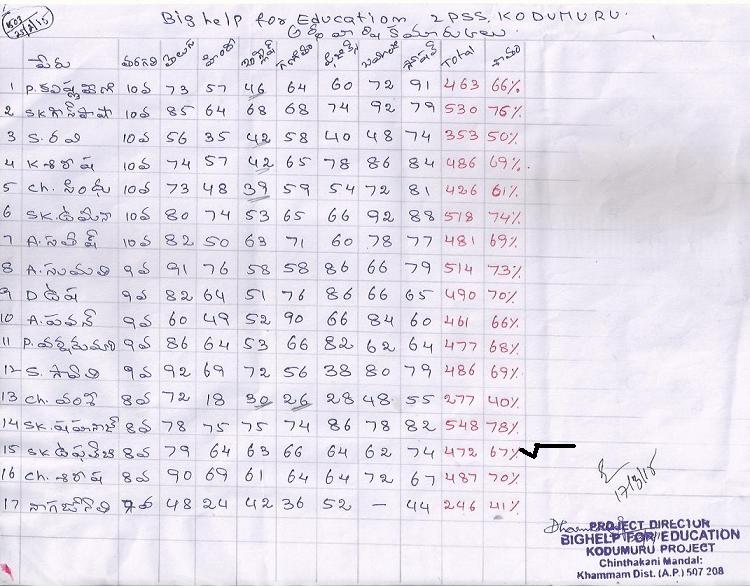 Big help for Education 2PSS, KODUMURU.
పేరు తరగతి తెలుగు హిందీ ఇంగ్లీష్ గణితం Total శాతం
1 P. 10వ 73 57 46 64 60 72 91 463 66%
2 SK 10వ 85 64 68 68 74 92 79 530 76%
3 S. రవి 10వ 56 35 42 58 40 48 74 353 50%
4 K శిరీష 10వ 74 57 42 65 78 86 84 486 69%.
5 Ch. సింధు 10వ 73 48 39 59 54 72 81 426 61%
6 SK. 10వ 80 74 53 65 66 92 88 518 74%
7 A. సతీష్ 10వ 82 50 63 71 60 78 77 481 69%
8 A. సుమతి 9వ 91 76 58 58 86 66 79 514 73%
9 D ఉష 9వ 82 64 51 76 86 66 65 490 70%
10 A. పవన్ 9వ 60 49 52 90 66 84 60 461 66%
11 P. 9వ 86 64 53 66 82 62 64 477 68%
12 S. 9వ 92 69 72 56 38 80 79 486 69%
13 Ch. వంశీ 8వ 72 18 30 26 28 48 55 277 40%
14 SK. 8వ 78 75 75 74 86 78 82 548 78%
15 SK. 8వ 79 64 63 66 64 62 74 472 67%
16 Ch. శిరీష 8వ 90 69 61 64 64 72 67 487 70%
17 48 24 42 36 52 – 44 246 41%
17/3/15
PROJECT DIRECTUR
BIGHELP FOR EDUCATION
KODUMURU PROJECT
Chinthakani Mandal:
Khammam Dist. (A.P.) 507 208